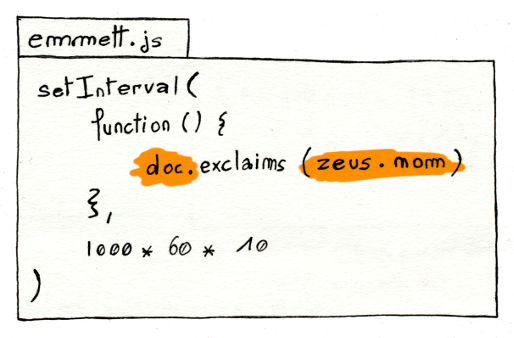 emmett.js
setInterval(
function () {
doc.exclaims (zeus.mom)
},
1000 * 60 * 10
)